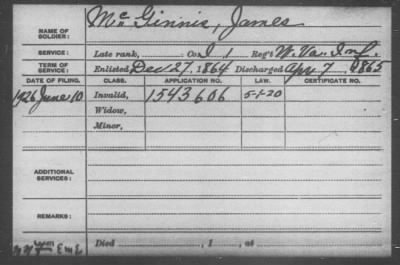 NAME OF SOLDIER: McGinnis, James
SERVICE: Late rank, Co. I 1 Reg't W. Va. Inf.
TERM OF SERVICE: Enlisted Dec 27, 1864 Discharged Apr 7, 1865
DATE OF FILING. CLASS. APPLICATION NO. LAW. CERTIFICATE NO.
1926 June 10 Invalid, 1543606 5-1-20
Widow,
Minor,
ADDITIONAL SERVICES:
REMARKS:
Died , 1 , at